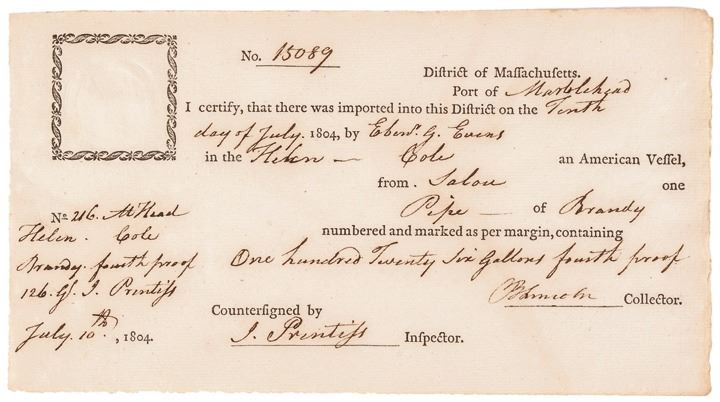 No. 15089
District of Massachusetts.
Port of Marblehead
I certify, that there was imported into this District on the Tenth
day of July. 1804, by Ebenr. G. Evens
in the Helen - Cole an American Vessel,
from Salou one
Pipe - of Brandy
numbered and marked as per margin, containing
One hundred Twenty Six Gallons fourth proof
Lincoln Collector.
Countersigned by
J. Prentiss Inspector.
No. 216. MHead
Helen. Cole
Brandy. fourth proof
126. Gs. J. Prentiss
July. 10th, 1804.